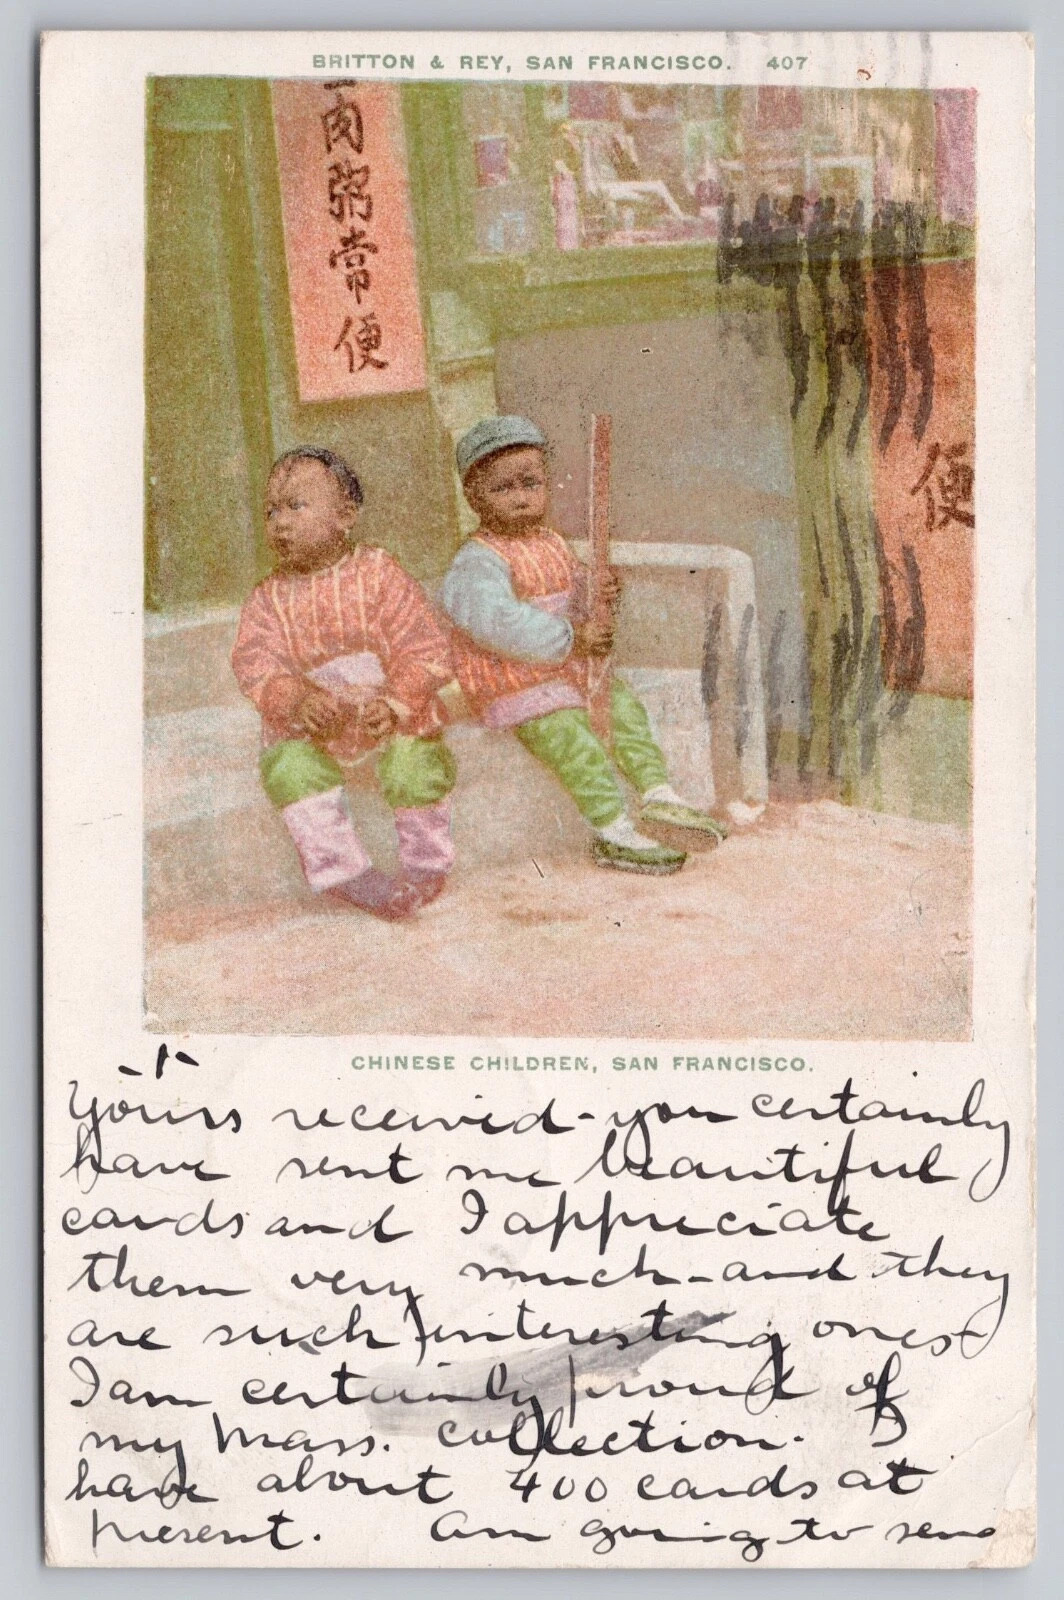 BRITTON & REY, SAN FRANCISCO. 407
肉
粥
常
便
便
CHINESE CHILDREN, SAN FRANCISCO.
Yours received - you certainly
have sent me beautiful
cards and I appreciate
them very much - and they
are such interesting ones
I am certainly proud of
my Mass. collection. I
have about 400 cards at
present. Am going to send